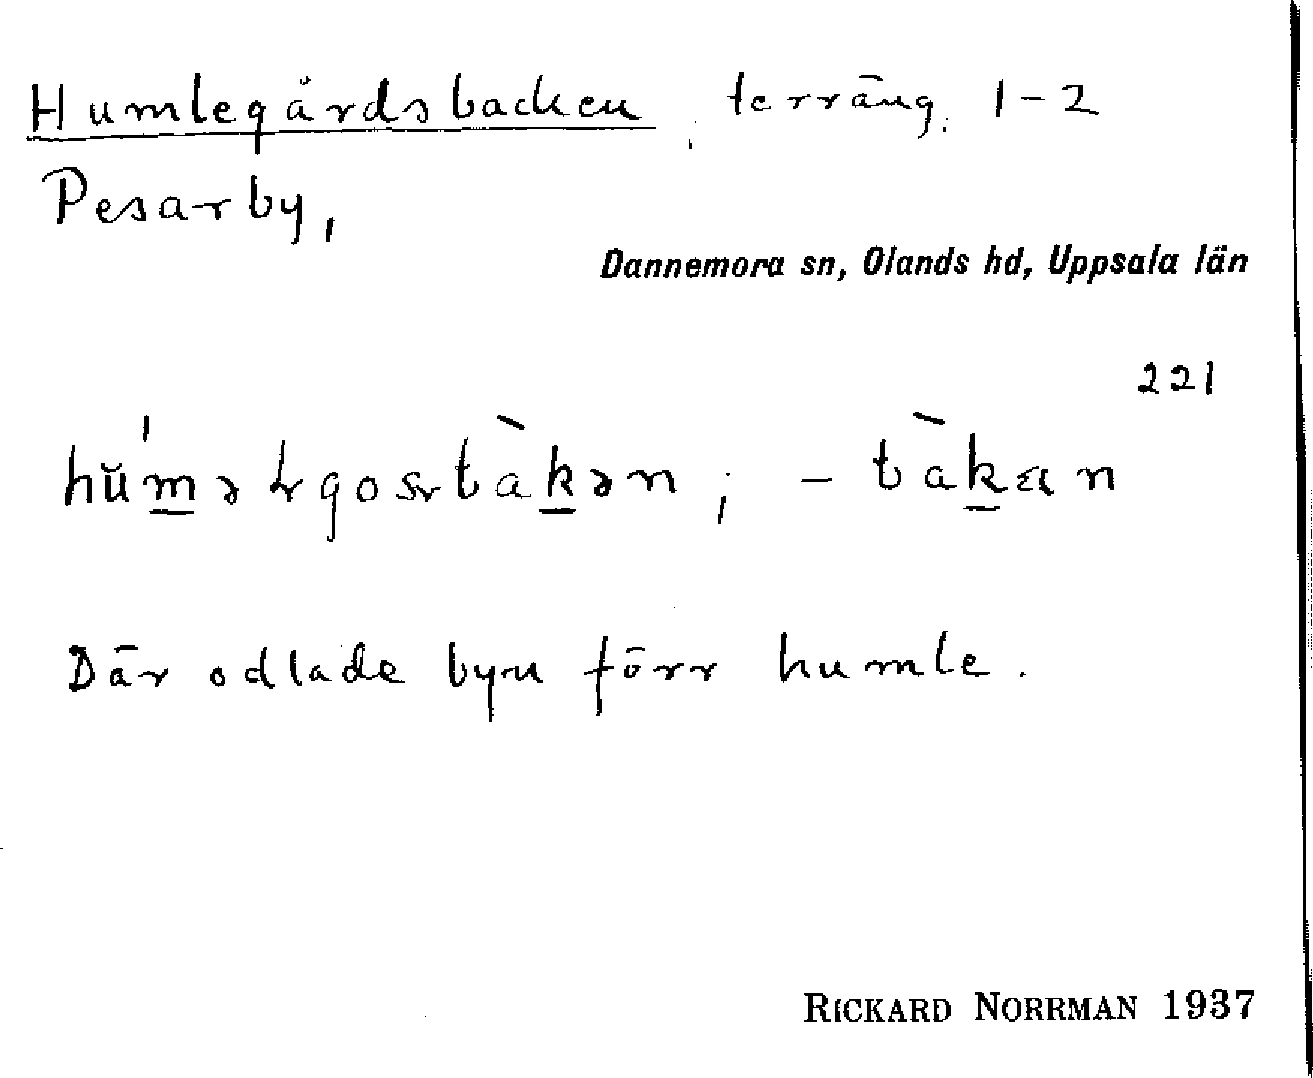 Humlegårdsbacken, terräng. 1-2
Pesarby,
Dannemora sn, Olands hd, Uppsala län
221
Där odlade byn förr humle.
RICKARD NORRMAN 1937